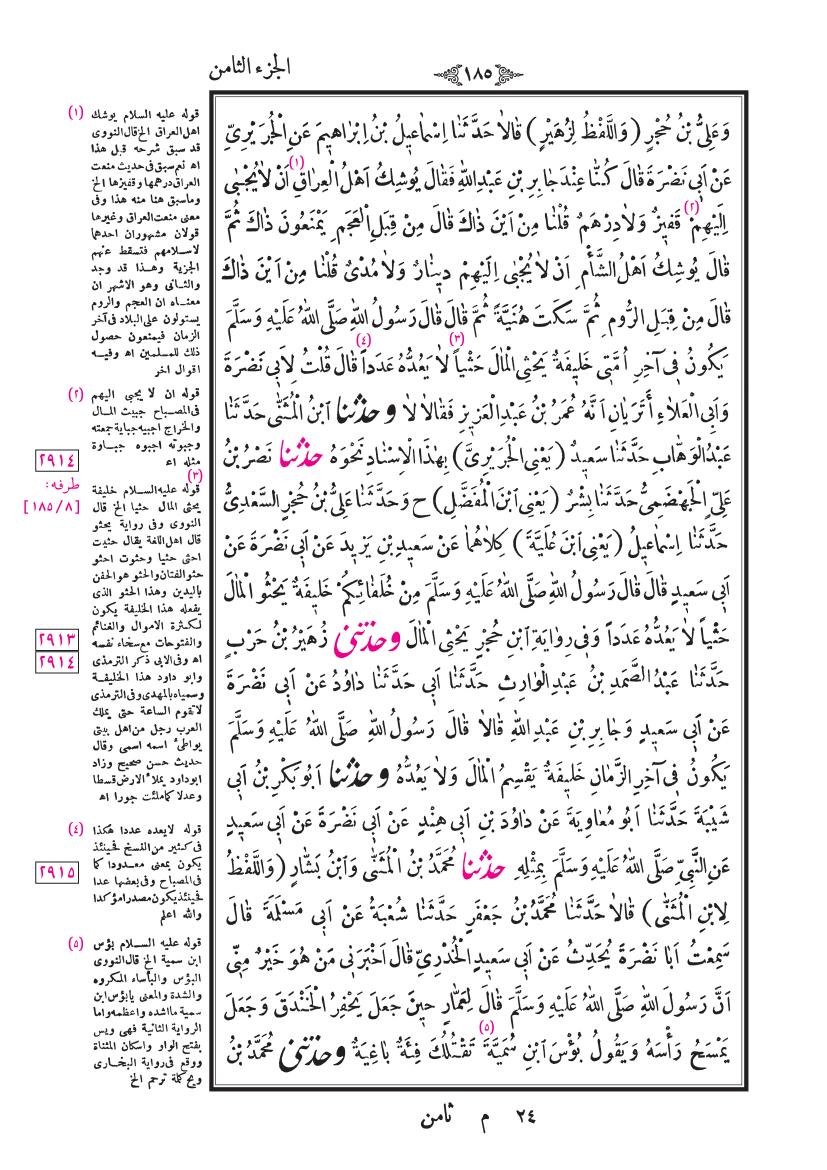 الجزء الثامن
١٨٥
وَعَلِيُّ بْنُ حُجْرٍ (وَاللَّفْظُ لِزُهَيْرٍ) قَالَا حَدَّثَنَا اِسْمَاعِيلُ بْنُ اِبْرَاهِيمَ عَنِ الْجُرَيْرِيِّ
عَنْ اَبِي نَضْرَةَ قَالَ كُنَّا عِنْدَ جَابِرِ بْنِ عَبْدِ اللهِ فَقَالَ يُوشِكُ اَهْلُ الْعِرَاقِ (١) اَنْ لَا يُجْبٰى
اِلَيْهِمْ (٢) قَفِيزٌ وَلَا دِرْهَمٌ قُلْنَا مِنْ اَيْنَ ذَاكَ قَالَ مِنْ قِبَلِ الْعَجَمِ يَمْنَعُونَ ذَاكَ ثُمَّ
قَالَ يُوشِكُ اَهْلُ الشَّأْمِ اَنْ لَا يُجْبٰى اِلَيْهِمْ دِينَارٌ وَلَا مُدْىٌ قُلْنَا مِنْ اَيْنَ ذَاكَ
قَالَ مِنْ قِبَلِ الرُّومِ ثُمَّ سَكَتَ هُنَيَّةً ثُمَّ قَالَ قَالَ رَسُولُ اللهِ صَلَّى اللهُ عَلَيْهِ وَسَلَّمَ
يَكُونُ فِي آخِرِ اُمَّتِي خَلِيفَةٌ يَحْثِي الْمَالَ حَثْياً (٣) لَا يَعُدُّهُ عَدَداً (٤) قَالَ قُلْتُ لِاَبِي نَضْرَةَ
وَاَبِي الْعَلَاءِ أَتَرَيَانِ اَنَّهُ عُمَرُ بْنُ عَبْدِ الْعَزِيزِ فَقَالَا لَا وحَدَّثَنَا ابْنُ الْمُثَنّٰى حَدَّثَنَا
عَبْدُ الْوَهَّابِ حَدَّثَنَا سَعِيدٌ (يَعْنِي الْجُرَيْرِيَّ) بِهٰذَا الْاِسْنَادِ نَحْوَهُ حَدَّثَنَا نَصْرُ بْنُ
عَلِيٍّ الْجَهْضَمِيُّ حَدَّثَنَا بِشْرٌ (يَعْنِي ابْنَ الْمُفَضَّلِ) ح وَحَدَّثَنَا عَلِيُّ بْنُ حُجْرٍ السَّعْدِيُّ
حَدَّثَنَا اِسْمَاعِيلُ (يَعْنِي ابْنَ عُلَيَّةَ) كِلَاهُمَا عَنْ سَعِيدِ بْنِ يَزِيدَ عَنْ اَبِي نَضْرَةَ عَنْ
اَبِي سَعِيدٍ قَالَ قَالَ رَسُولُ اللهِ صَلَّى اللهُ عَلَيْهِ وَسَلَّمَ مِنْ خُلَفَائِكُمْ خَلِيفَةٌ يَحْثُو الْمَالَ
حَثْياً لَا يَعُدُّهُ عَدَداً وَفِي رِوَايَةِ ابْنِ حُجْرٍ يَحْثِي الْمَالَ وحَدَّثَنِي زُهَيْرُ بْنُ حَرْبٍ
حَدَّثَنَا عَبْدُ الصَّمَدِ بْنُ عَبْدِ الْوَارِثِ حَدَّثَنَا اَبِي حَدَّثَنَا دَاوُدُ عَنْ اَبِي نَضْرَةَ
عَنْ اَبِي سَعِيدٍ وَجَابِرِ بْنِ عَبْدِ اللهِ قَالَا قَالَ رَسُولُ اللهِ صَلَّى اللهُ عَلَيْهِ وَسَلَّمَ
يَكُونُ فِي آخِرِ الزَّمَانِ خَلِيفَةٌ يَقْسِمُ الْمَالَ وَلَا يَعُدُّهُ وحَدَّثَنَا اَبُو بَكْرِ بْنُ اَبِي
شَيْبَةَ حَدَّثَنَا اَبُو مُعَاوِيَةَ عَنْ دَاوُدَ بْنِ اَبِي هِنْدٍ عَنْ اَبِي نَضْرَةَ عَنْ اَبِي سَعِيدٍ
عَنِ النَّبِيِّ صَلَّى اللهُ عَلَيْهِ وَسَلَّمَ بِمِثْلِهِ حَدَّثَنَا مُحَمَّدُ بْنُ الْمُثَنّٰى وَابْنُ بَشَّارٍ (وَاللَّفْظُ
لِابْنِ الْمُثَنّٰى) قَالَا حَدَّثَنَا مُحَمَّدُ بْنُ جَعْفَرٍ حَدَّثَنَا شُعْبَةُ عَنْ اَبِي مَسْلَمَةَ قَالَ
سَمِعْتُ اَبَا نَضْرَةَ يُحَدِّثُ عَنْ اَبِي سَعِيدٍ الْخُدْرِيِّ قَالَ اَخْبَرَنِي مَنْ هُوَ خَيْرٌ مِنِّي
اَنَّ رَسُولَ اللهِ صَلَّى اللهُ عَلَيْهِ وَسَلَّمَ قَالَ لِعَمَّارٍ حِينَ جَعَلَ يَحْفِرُ الْخَنْدَقَ وَجَعَلَ
يَمْسَحُ رَأْسَهُ وَيَقُولُ بُؤْسَ ابْنِ سُمَيَّةَ (٥) تَقْتُلُكَ فِئَةٌ بَاغِيَةٌ وحَدَّثَنِي مُحَمَّدُ بْنُ
(١) قوله عليه السلام يوشك
اهل العراق الخ قال النووى
قد سبق شرحه قبل هذا
اه نعم سبق فى حديث منعت
العراق درهمها وقفيزها الخ
وما سبق هنا منه هذا وفى
معنى منعت العراق وغيرها
قولان مشهوران احدهما
لاسلامهم فتسقط عنهم
الجزية وهذا قد وجد
والثانى وهو الاشهر ان
معناه ان العجم والروم
يستولون على البلاد فى آخر
الزمان فيمنعون حصول
ذلك للمسلمين اه وفيه
اقوال اخر
(٢) قوله ان لا يجبى اليهم
فى المصباح جبيت المال
والخراج اجبيه جباية جمعته
وجبوته اجبوه جباوة
مثله اه
(٣) قوله عليه السلام خليفة
يحثى المال حثيا الخ قال
النووى وفى رواية يحثو
قال اهل اللغة يقال حثيت
احثى حثيا وحثوت احثو
حثوا لغتان والحثو هو الحفن
باليدين وهذا الحثو الذى
يفعله هذا الخليفة يكون
لكثرة الاموال والغنائم
والفتوحات مع سخاء نفسه
اه وفى الابى ذكر الترمذى
وابو داود هذا الخليفة
وسمياه بالمهدى وفى الترمذى
لا تقوم الساعة حتى يملك
العرب رجل من اهل بيتى
يواطئ اسمه اسمى وقال
حديث حسن صحيح وزاد
ابو داود يملأ الارض قسطا
وعدلا كما ملئت جورا اه
(٤) قوله لا يعده عددا هكذا
فى كثير من النسخ فحينئذ
يكون بمعنى معدودا كما
فى المصباح وفى بعضها عدا
فحينئذ يكون مصدرا مؤكدا
والله اعلم
(٥) قوله عليه السلام بؤس
ابن سمية الخ قال النووى
البؤس والبأساء المكروه
والشدة والمعنى يا بؤس ابن
سمية ما اشده واعظمه واما
الرواية الثانية فهى ويس
بفتح الواو واسكان المثناة
ووقع فى رواية البخارى
ويح كلمة ترحم الخ
٢٩١٤
طرفه:
[١٨٥/٨]
٢٩١٣
٢٩١٤
٢٩١٥
٢٤ م ثامن